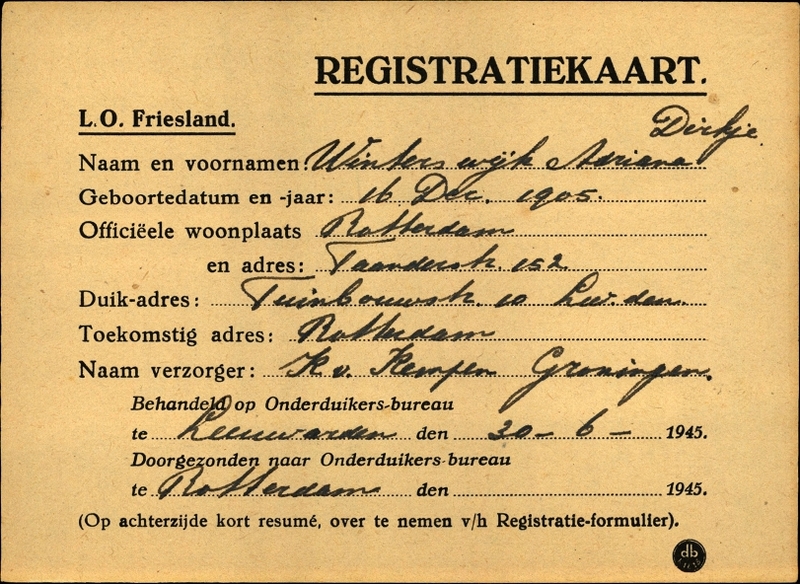 REGISTRATIEKAART.
L.O. Friesland.
Dirkje
Naam en voornamen: Winterswijk Adriana
Geboortedatum en -jaar: 16 Dec. 1905.
Officiëele woonplaats Rotterdam
en adres: Taanderstr. 152
Duik-adres: Tuinbouwstr. 10 Leeuwden.
Toekomstig adres: Rotterdam
Naam verzorger: K v. Kempen Groningen.
Behandeld op Onderduikers-bureau
te Leeuwarden den 30 - 6 - 1945.
Doorgezonden naar Onderduikers-bureau
te Rotterdam den 1945.
(Op achterzijde kort resumé, over te nemen v/h Registratie-formulier).
db